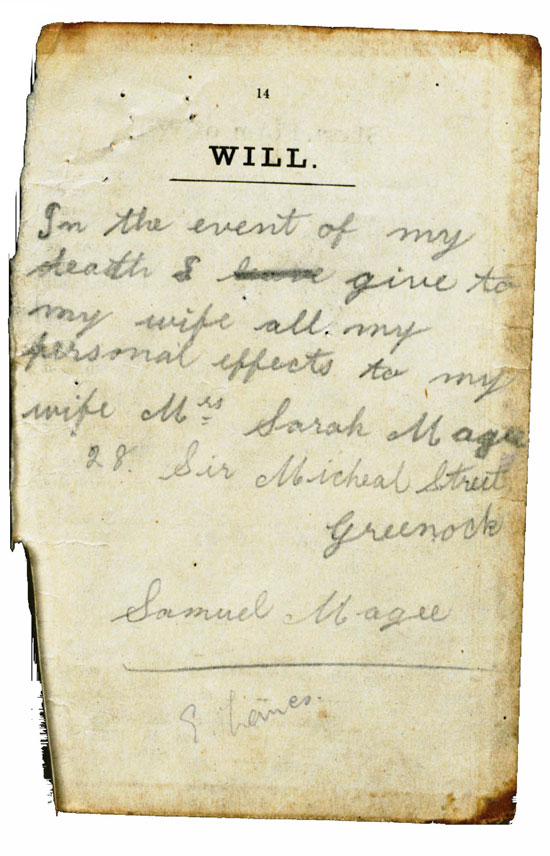 14
WILL.
In the event of my
death I give to
my wife all my
personal effects to my
wife Mrs Sarah Magee
28. Sir Micheal Street
Greenock
Samuel Magee